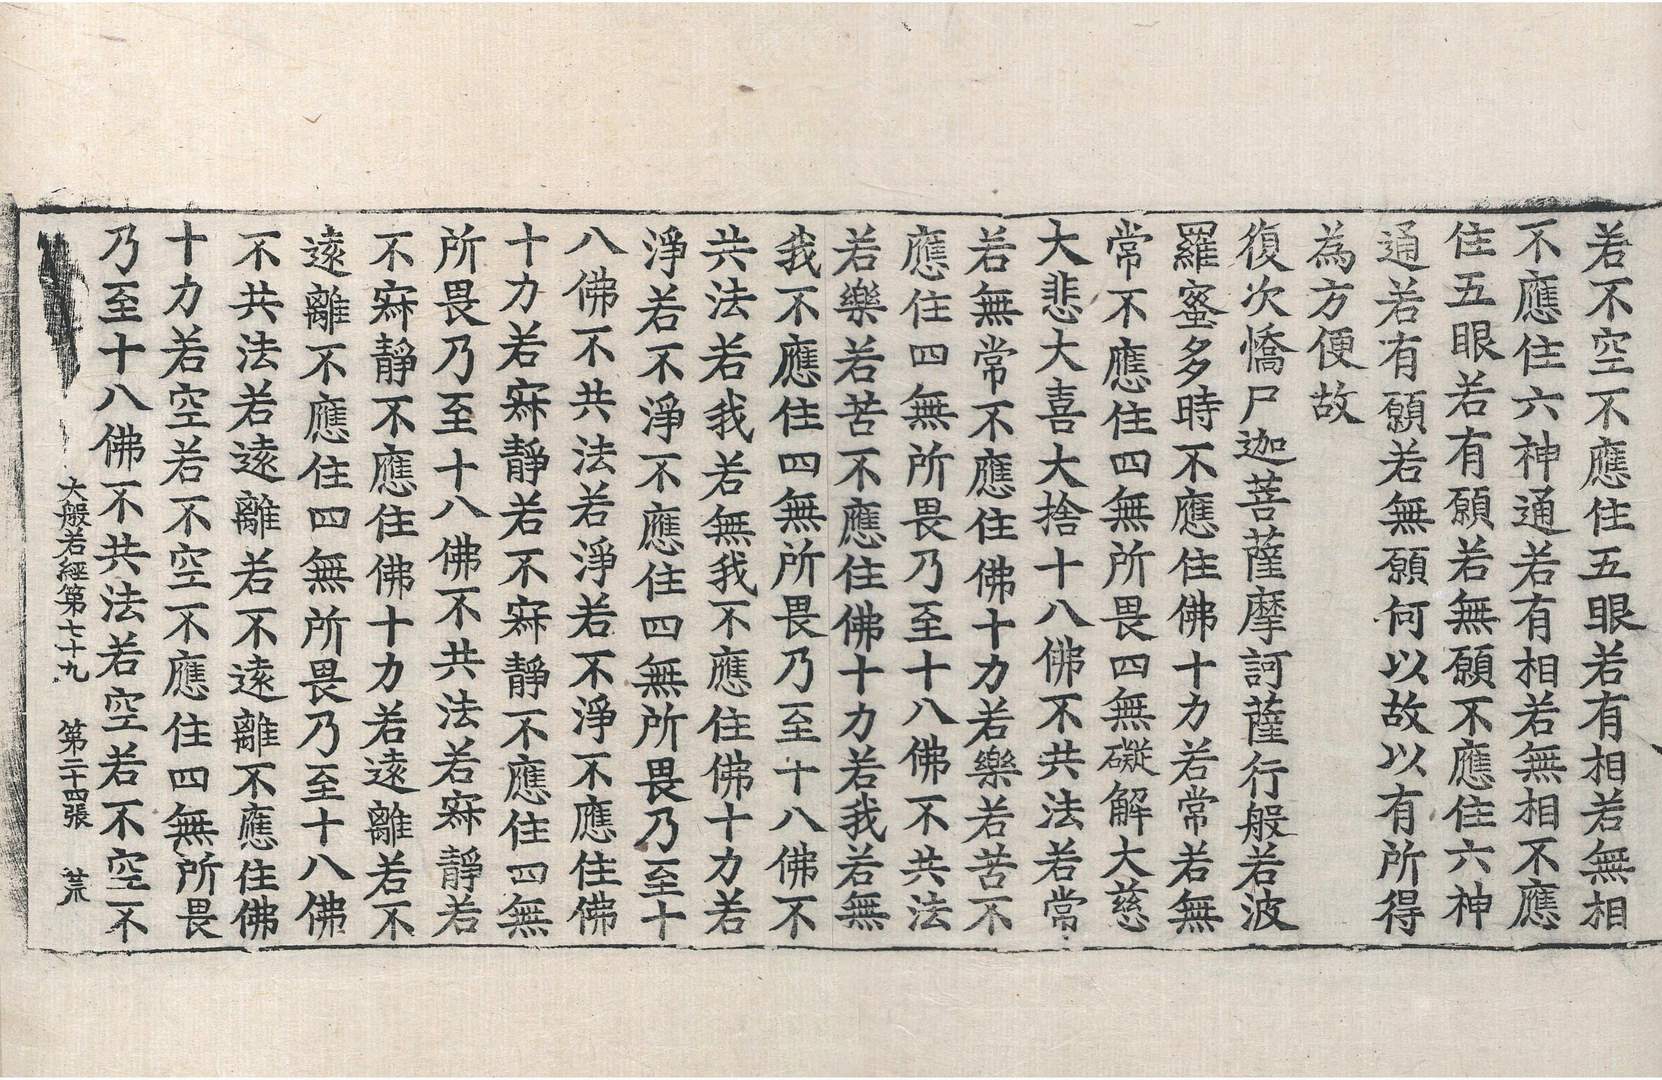 若不空不應住五眼若有相若無相
不應住六神通若有相若無相不應
住五眼若有願若無願不應住六神
通若有願若無願何以故以有所得
為方便故
復次憍尸迦菩薩摩訶薩行般若波
羅蜜多時不應住佛十力若常若無
常不應住四無所畏四無礙解大慈
大悲大喜大捨十八佛不共法若常
若無常不應住佛十力若樂若苦不
應住四無所畏乃至十八佛不共法
若樂若苦不應住佛十力若我若無
我不應住四無所畏乃至十八佛不
共法若我若無我不應住佛十力若
淨若不淨不應住四無所畏乃至十
八佛不共法若淨若不淨不應住佛
十力若寂靜若不寂靜不應住四無
所畏乃至十八佛不共法若寂靜若
不寂靜不應住佛十力若遠離若不
遠離不應住四無所畏乃至十八佛
不共法若遠離若不遠離不應住佛
十力若空若不空不應住四無所畏
乃至十八佛不共法若空若不空不
大般若經第七十九 第二十四張 荒